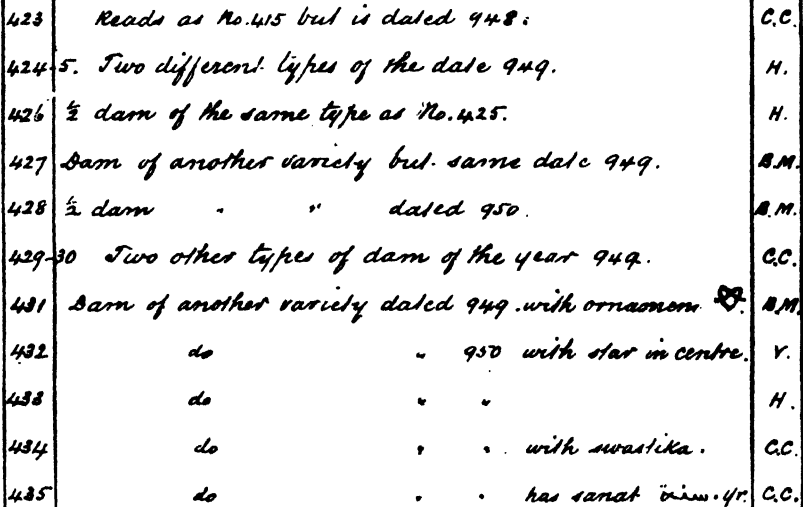 423 Reads as No.415 but is dated 948. C.C.
424-5. Two different types of the date 949. H.
426 ½ dam of the same type as No.425. H.
427 Dam of another variety but same date 949. B.M.
428 ½ dam " " dated 950. B.M.
429-30 Two other types of dam of the year 949. C.C.
431 Dam of another variety dated 949 with ornament. B.M.
432 do " 950 with star in centre. V.
433 do " " H.
434 do " " with swastika. C.C.
435 do " " has sanat سنة yr. C.C.